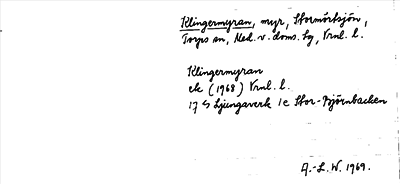 Klingermyran, myr, Stormörtsjön,
Torps sn, Med. v. doms. hg, Vrnl. l.
Klingermyran
ek (1968) Vrnl. l.
17 G Ljungaverk 1c Stor-Björnbacken
A.-L. W. 1969.